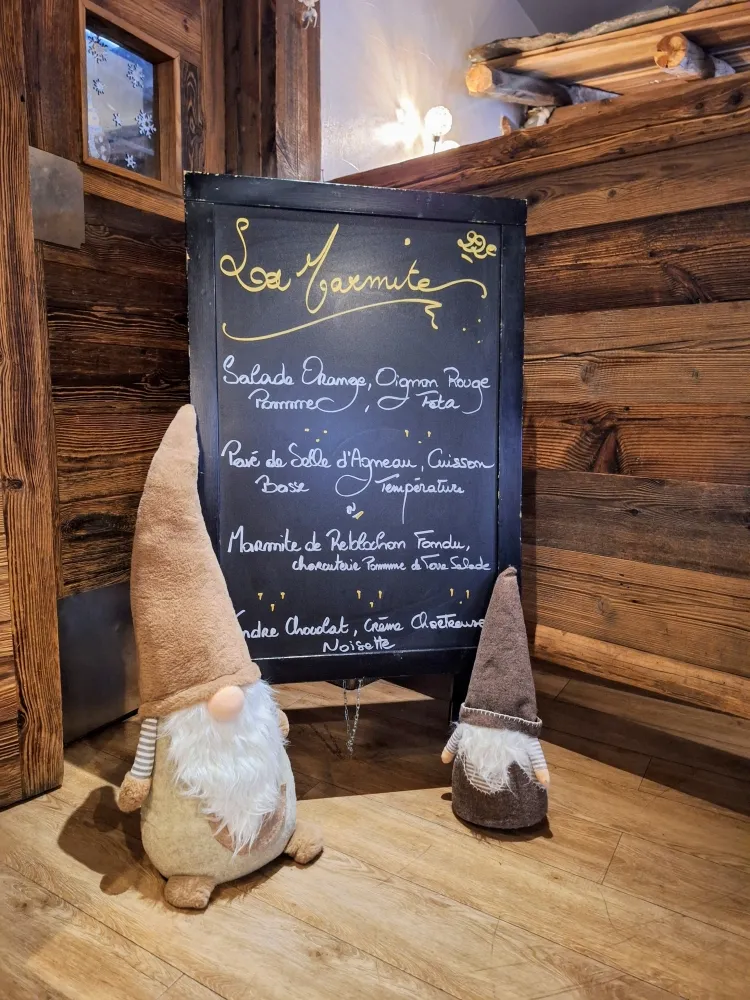 La Marmite
Salade Orange, Oignon Rouge
Pomme, Feta
Pavé de Selle d'Agneau, Cuisson
Basse Température
Marmite de Reblochon Fondu,
charcuterie Pomme de Terre Salade
ndre Chocolat, Crème Chartreuse
Noisette